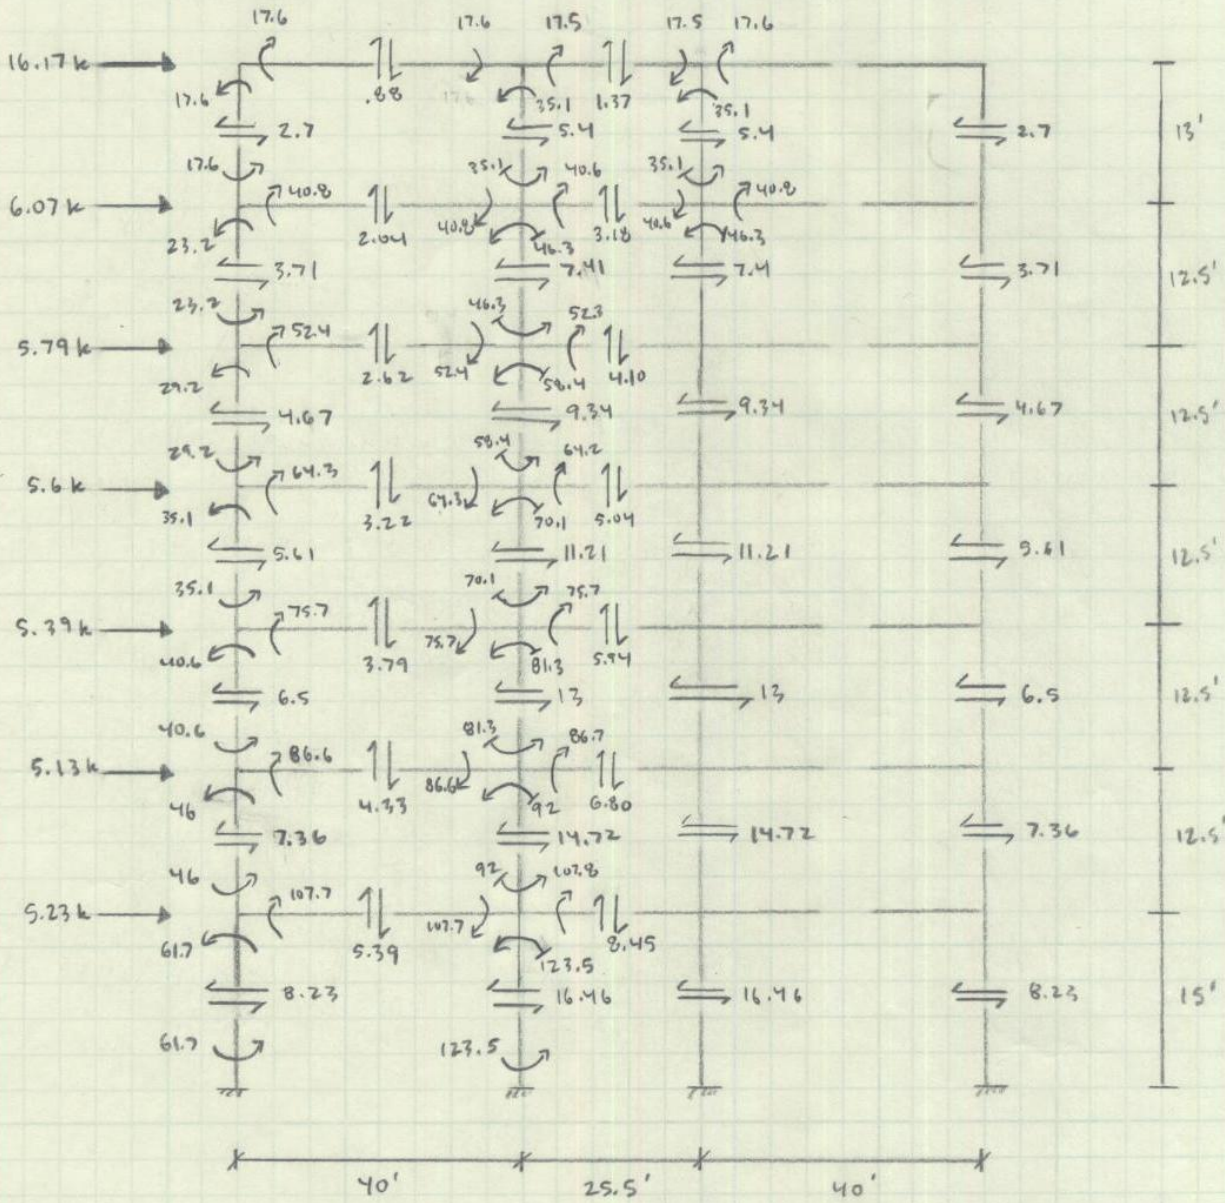 17.6 17.6 17.5 17.5 17.6
16.17k
17.6 .88 35.1 1.37 35.1
2.7 5.4 5.4 2.7 13'
17.6 40.8 35.1 40.6 35.1 40.8
6.07k
23.2 2.04 40.8 46.3 3.18 40.6 46.3
3.71 7.41 7.4 3.71 12.5'
23.2 52.4 46.3 52.3
5.79k
29.2 2.62 52.4 58.4 4.10
4.67 9.34 9.34 4.67 12.5'
29.2 64.3 58.4 64.2
5.6k
35.1 3.22 64.3 70.1 5.04
5.61 11.21 11.21 5.61 12.5'
35.1 75.7 70.1 75.7
5.39k
40.6 3.79 75.7 81.3 5.94
6.5 13 13 6.5 12.5'
40.6 86.6 81.3 86.7
5.13k
46 4.33 86.6 92 6.80
7.36 14.72 14.72 7.36 12.5'
46 107.7 92 107.8
5.23k
61.7 5.39 107.7 123.5 8.45
8.23 16.46 16.46 8.23 15'
61.7 123.5
40' 25.5' 40'